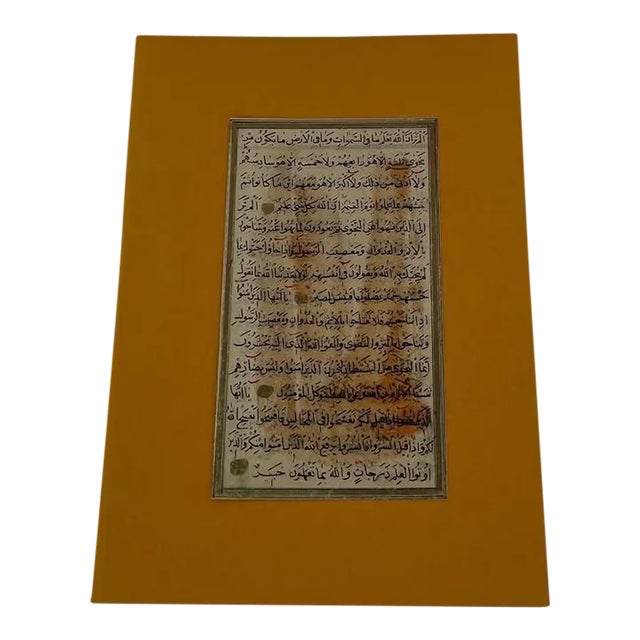 الم تر ان الله يعلم ما في السموات وما في الارض ما يكون من
نجوى ثلثة الا هو رابعهم ولا خمسة الا هو سادسهم
ولا ادنى من ذلك ولا اكثر الا هو معهم اين ما كانوا ثم
ينبئهم بما عملوا يوم القيمة ان الله بكل شئ عليم الم تر
الى الذين نهوا عن النجوى ثم يعودون لما نهوا عنه ويتناجون
بالاثم والعدوان ومعصيت الرسول واذا جاؤك حيوك بما
لم يحيك به الله ويقولون في انفسهم لولا يعذبنا الله بما نقول
حسبهم جهنم يصلونها فبئس المصير يا ايها الذين امنوا
اذا تناجيتم فلا تتناجوا بالاثم والعدوان ومعصيت الرسول
وتناجوا بالبر والتقوى واتقوا الله الذي اليه تحشرون
انما النجوى من الشيطان ليحزن الذين امنوا وليس بضارهم
شيئا الا باذن الله وعلى الله فليتوكل المؤمنون يا ايها
الذين امنوا اذا قيل لكم تفسحوا في المجالس فافسحوا يفسح الله
لكم واذا قيل انشزوا فانشزوا يرفع الله الذين امنوا منكم والذين
اوتوا العلم درجات والله بما تعملون خبير